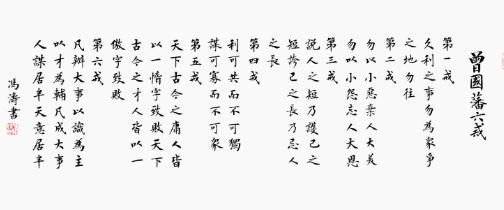 曾國藩六戒
第一戒
久利之事勿為眾爭
之地勿往
第二戒
勿以小惡棄人大美
勿以小怨忘人大恩
第三戒
說人之短乃護己之
短誇己之長乃忌人
之長
第四戒
利可共而不可獨
謀可寡而不可眾
第五戒
天下古今之庸人皆
以一惰字致敗天下
古今之才人皆以一
傲字致敗
第六戒
凡辦大事以識為主
以才為輔凡成大事
人謀居半天意居半
馮濤書